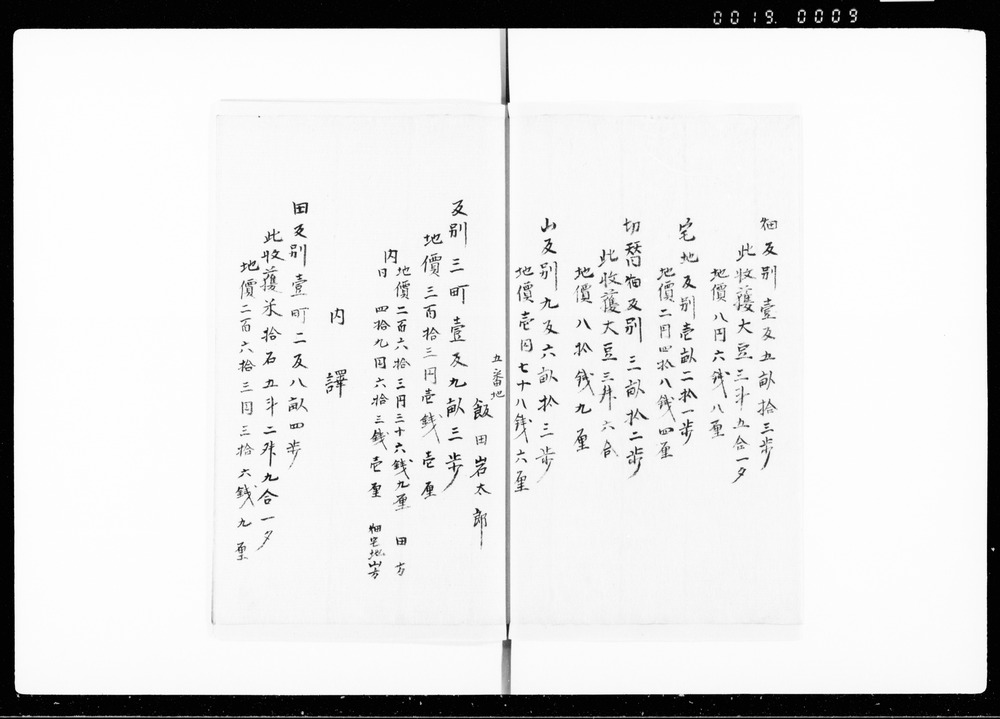 0019.0009
畑反別壹反五畝拾三歩
此收穫大豆三斗五合一夕
地價八円六銭八厘
宅地反別壱畝二拾一歩
地價二円四拾八銭四厘
切替畑反別三畝拾二歩
此收穫大豆三升六合
地價八拾銭九厘
山反別九反六畝拾三歩
地價壱円七十八銭六厘
五番地
飯田岩太郎
反別三町壹反九畝三歩
地價三百拾三円壱銭壱厘
地價二百六拾三円三十六銭九厘 田方
内
日 四拾九円六拾三銭壱厘 畑宅地山方
内譯
田反別壹町二反八畝四歩
此收穫米拾石五斗二升九合一夕
地價二百六拾三円三拾六銭九厘